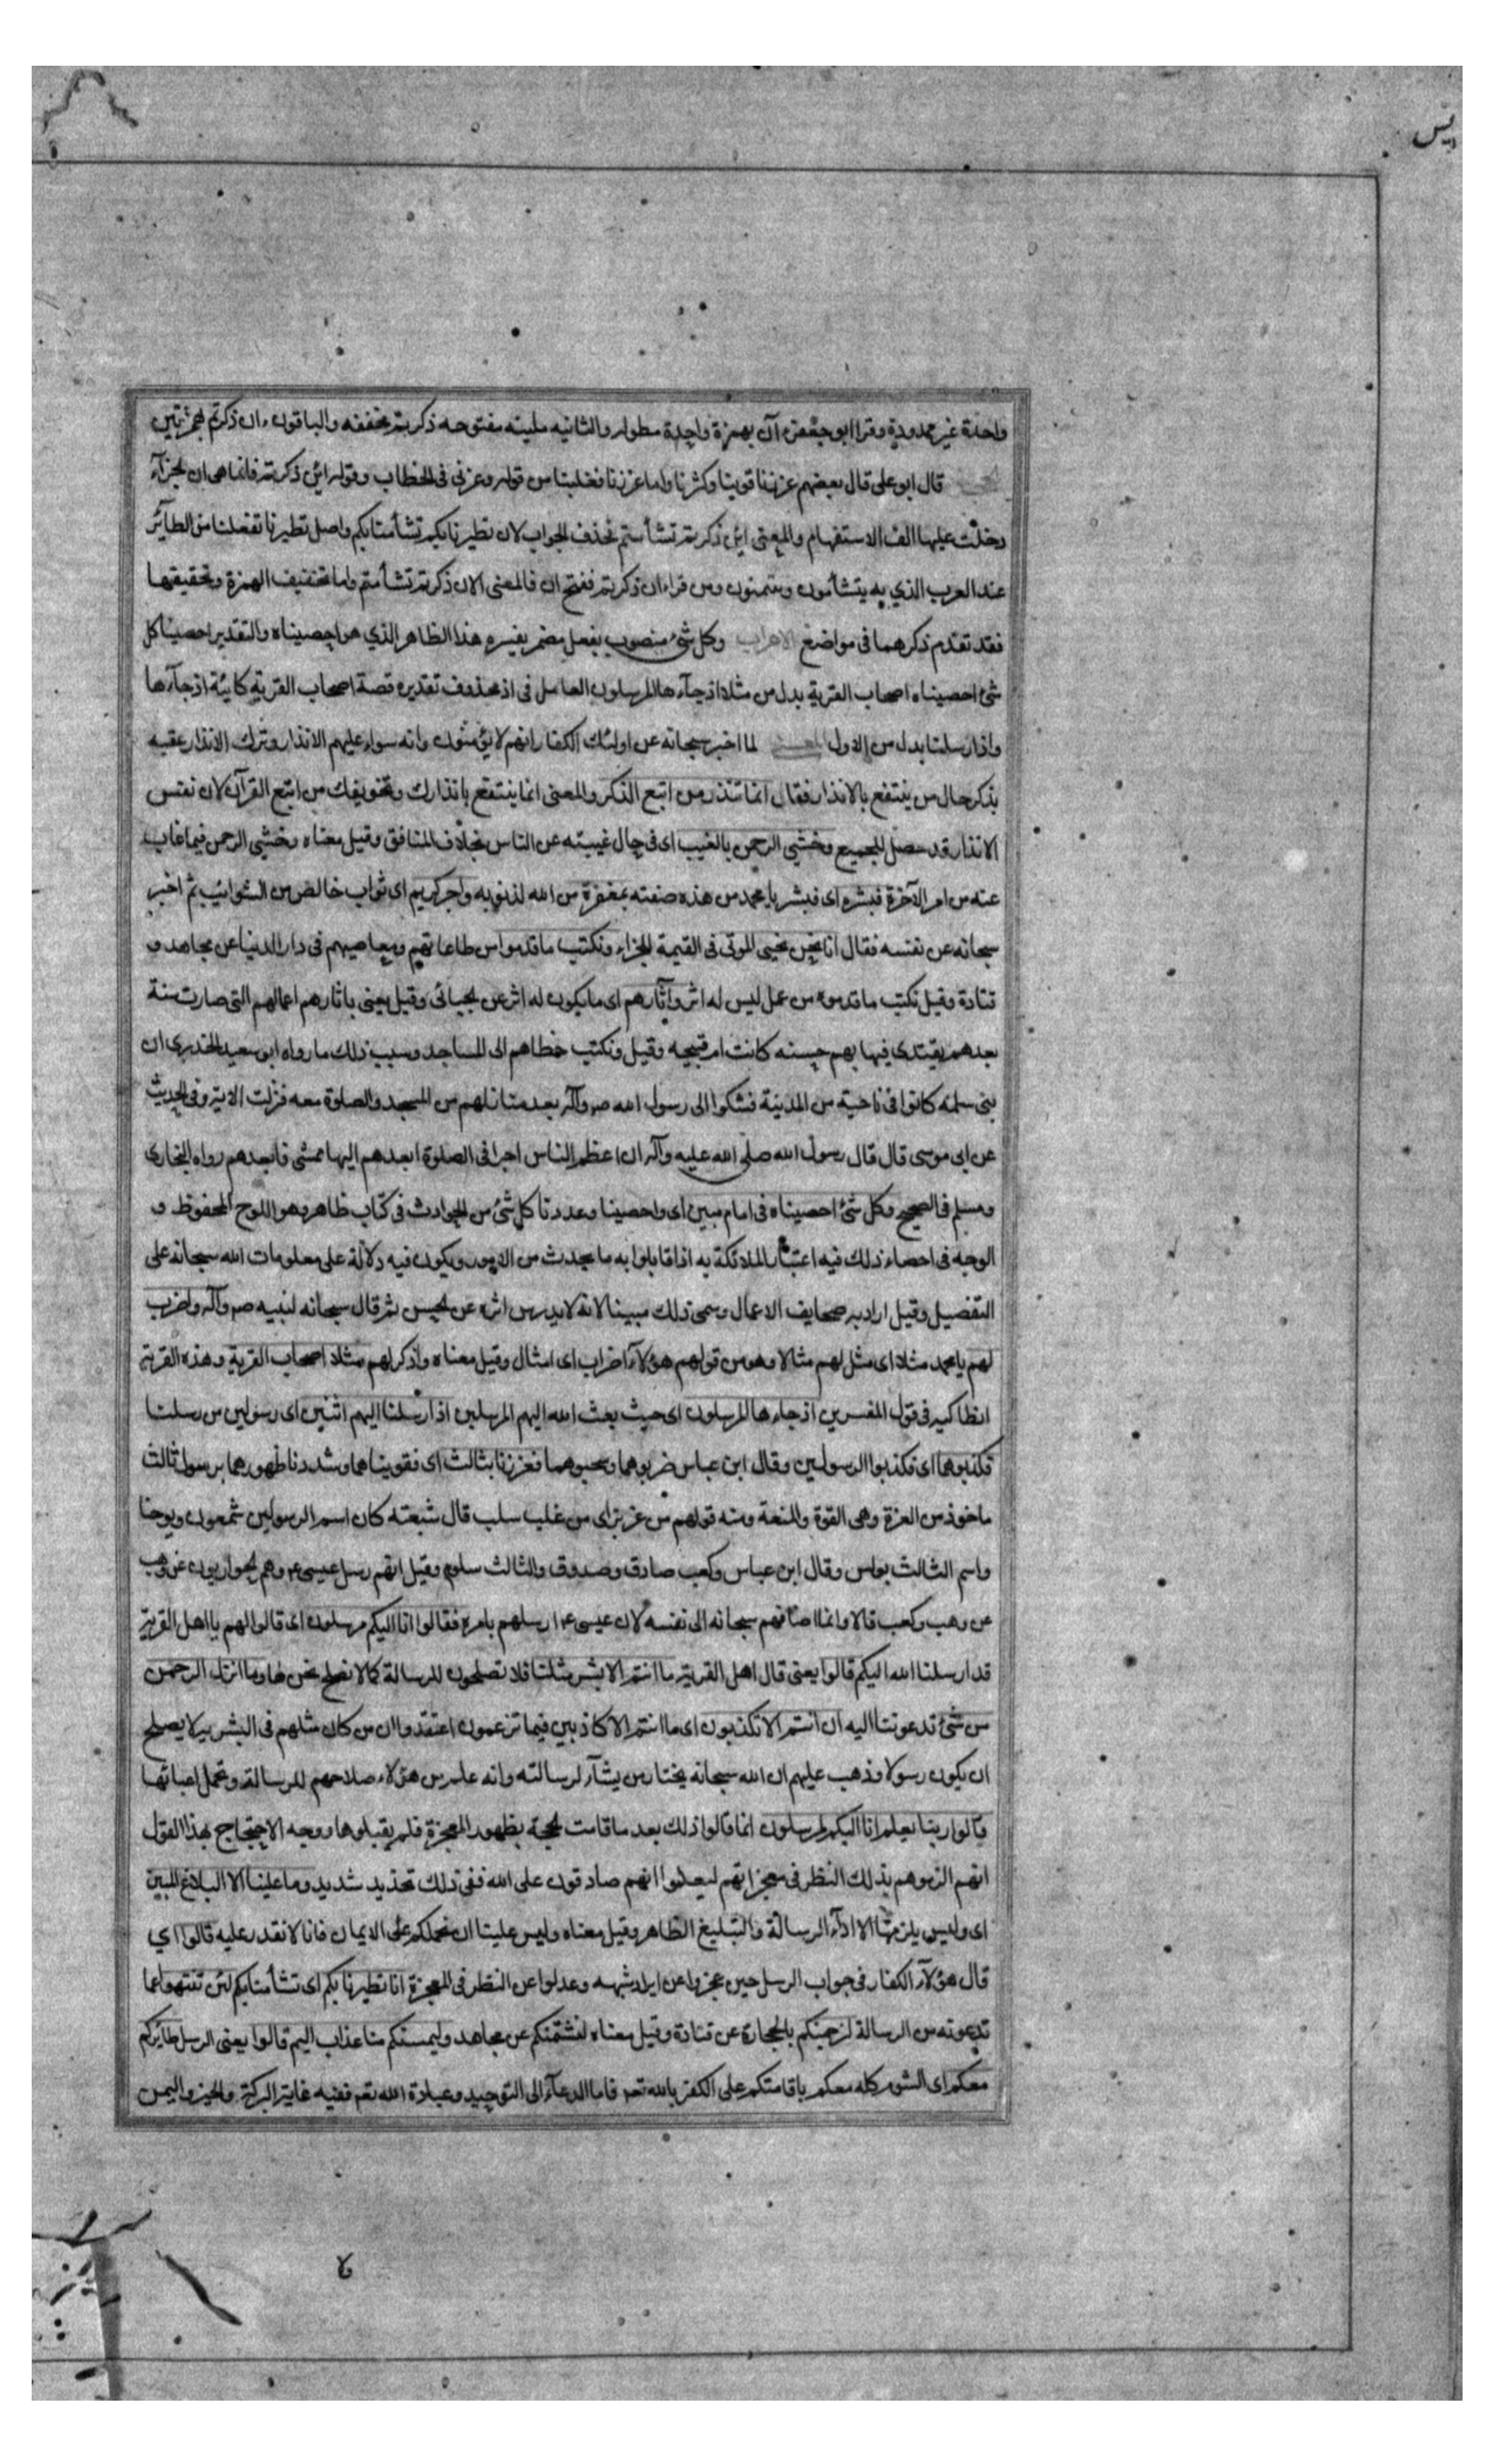 يس
واحدة غير ممدودة وقرا ابوجعفر ءآن بهمزة واحدة مطولة والثانيه ملينه مفتوحه ذكرتم مخففه والباقون ءان ذكرتم بهمزتين
الحجة قال ابو على قال بعضهم عززنا قوينا وكثرنا واما عززنا فغلبنا من قوله وعزنى فى الخطاب وقوله ائن ذكرتم فانما هى ان للجزآء
دخلت عليها الف الاستفهام والمعنى ائن ذكرتم تشأمتم فحذف الجواب لان تطيرنا بكم تشأمنا بكم واصل تطيرنا تفعلنا من الطائر
عند العرب الذي به يتشأمون ويتمنون ومن قراءان ذكرتم ففتح ان فالمعنى الان ذكرتم تشأمتم واما تخفيف الهمزة وتحقيقها
فقد تقدم ذكرهما فى مواضع الاعراب وكل شئ منصوب بفعل مضمر يفسره هذا الظاهر الذي هو احصيناه والتقدير احصينا كل
شئ احصيناه اصحاب القرية بدل من مثلا اذ جآءها المرسلون العامل فى اذ محذوف تقديره قصة اصحاب القرية كاينة اذ جآءها
واذ ارسلنا بدل من الاول المعنى لما اخبر سبحانه عن اولئك الكفار انهم لا يؤمنون وانه سواء عليهم الانذار وترك الانذار عقبه
بذكر حال من ينتفع بالانذار فقال انما تنذر من اتبع الذكر والمعنى انما ينتفع بانذارك وتخويفك من اتبع القرآن لان نفس
الانذار قد حصل للجميع وخشي الرحمن بالغيب اى فى حال غيبته عن الناس بخلاف المنافق وقيل معناه وخشي الرحمن فيما غاب
عنه من امر الآخرة فبشره اى فبشر يا محمد من هذه صفته بمغفرة من الله لذنوبه واجر كريم اى ثواب خالص من الشوائب ثم اخبر
سبحانه عن نفسه فقال انا نحن نحيي الموتى فى القيمة للجزاء ونكتب ما قدموا من طاعاتهم ومعاصيهم فى دار الدنيا عن مجاهد و
قتادة وقيل نكتب ما قدموه من عمل ليس له اثر وآثارهم اى ما يكون له اثر عن الجبائى وقيل يعنى باثارهم اعمالهم التى صارت سنة
بعدهم يقتدى فيها بهم حسنه كانت ام قبيحه وقيل ونكتب خطاهم الى المساجد وسبب ذلك ما رواه ابو سعيد الخدرى ان
بنى سلمه كانوا فى ناحية من المدينة فشكوا الى رسول الله صم وآله بعد منازلهم من المسجد والصلوة معه فنزلت الاية وفى الحديث
عن ابى موسى قال قال رسول الله صلى الله عليه وآله ان اعظم الناس اجرا فى الصلوة ابعدهم اليها ممشى فابعدهم رواه البخارى
ومسلم فى الصحيح وكل شئ احصيناه فى امام مبين اى واحصينا وعددنا كل شئ من الحوادث فى كتاب ظاهر وهو اللوح المحفوظ و
الوجه فى احصاء ذلك فيه اعتبار الملائكة به اذا قابلوا به ما يحدث من الامور ويكون فيه دلالة على معلومات الله سبحانه على
التفصيل وقيل اراد به صحايف الاعمال وسمى ذلك مبينا لانه لا يدرس اثره عن الحسن ثم قال سبحانه لنبيه صم وآله واضرب
لهم يا محمد مثلا اى مثل لهم مثالا وهو من قولهم هؤلآء اضراب اى امثال وقيل معناه واذكر لهم مثلا اصحاب القرية وهذه القرية
انطاكيه فى قول المفسرين اذ جاءها المرسلون اى حيث بعث الله اليهم المرسلين اذ ارسلنا اليهم اثنين اى رسولين من رسلنا
فكذبوهما اى فكذبوا الرسولين وقال ابن عباس ضربوهما وسجنوهما فعززنا بثالث اى فقويناهما وشددنا ظهورهما برسول ثالث
ماخوذ من العزة وهى القوة والمنعة ومنه قولهم من عز بز اى من غلب سلب قال شعبة كان اسم الرسولين شمعون ويوحنا
واسم الثالث بولس وقال ابن عباس وكعب صادق وصدوق والثالث سلوم وقيل انهم رسل عيسى ع وهم الحواريون عن وهب
عن وهب وكعب قالا وانما اضافهم سبحانه الى نفسه لان عيسى ع ارسلهم بامره فقالوا انا اليكم مرسلون اى قالوا لهم يا اهل القرية
قد ارسلنا الله اليكم قالوا يعنى قال اهل القرية ما انتم الا بشر مثلنا فلا تصلحون للرسالة كما لا نصلح نحن لها وما انزل الرحمن
من شئ تدعوننا اليه ان انتم الا تكذبون اى ما انتم الا كاذبين فيما تزعمون اعتقدوا ان من كان مثلهم فى البشرية لا يصلح
ان يكون رسولا وذهب عليهم ان الله سبحانه يختار من يشآء لرسالته وانه علم من هؤلاء صلاحهم للرسالة وتحمل اعبائها
قالوا ربنا يعلم انا اليكم لمرسلون انما قالوا ذلك بعد ما قامت الحجة بظهور المعجزة فلم يقبلوها ووجه الاحتجاج بهذا القول
انهم الزموهم بذلك النظر فى معجزاتهم ليعلموا انهم صادقون على الله ففى ذلك تحذير شديد وما علينا الا البلاغ المبين
اى وليس يلزمنا الا ادآء الرسالة والتبليغ الظاهر وقيل معناه وليس علينا ان نحملكم على الايمان فانا لا نقدر عليه قالوا اي
قال هؤلآء الكفار فى جواب الرسل حين عجزوا عن ايراد شبهه وعدلوا عن النظر فى المعجزة انا تطيرنا بكم اى تشأمنا بكم لئن تنتهوا عما
تدعونه من الرسالة لنرجمنكم بالحجارة عن قتادة وقيل معناه لنشتمنكم عن مجاهد وليمسنكم منا عذاب اليم قالوا يعنى الرسل طائركم
معكم اى الشوم كله معكم باقامتكم على الكفر بالله تعم فاما الدعآء الى التوحيد وعبادة الله تعم ففيه غاية البركة والخير واليمن